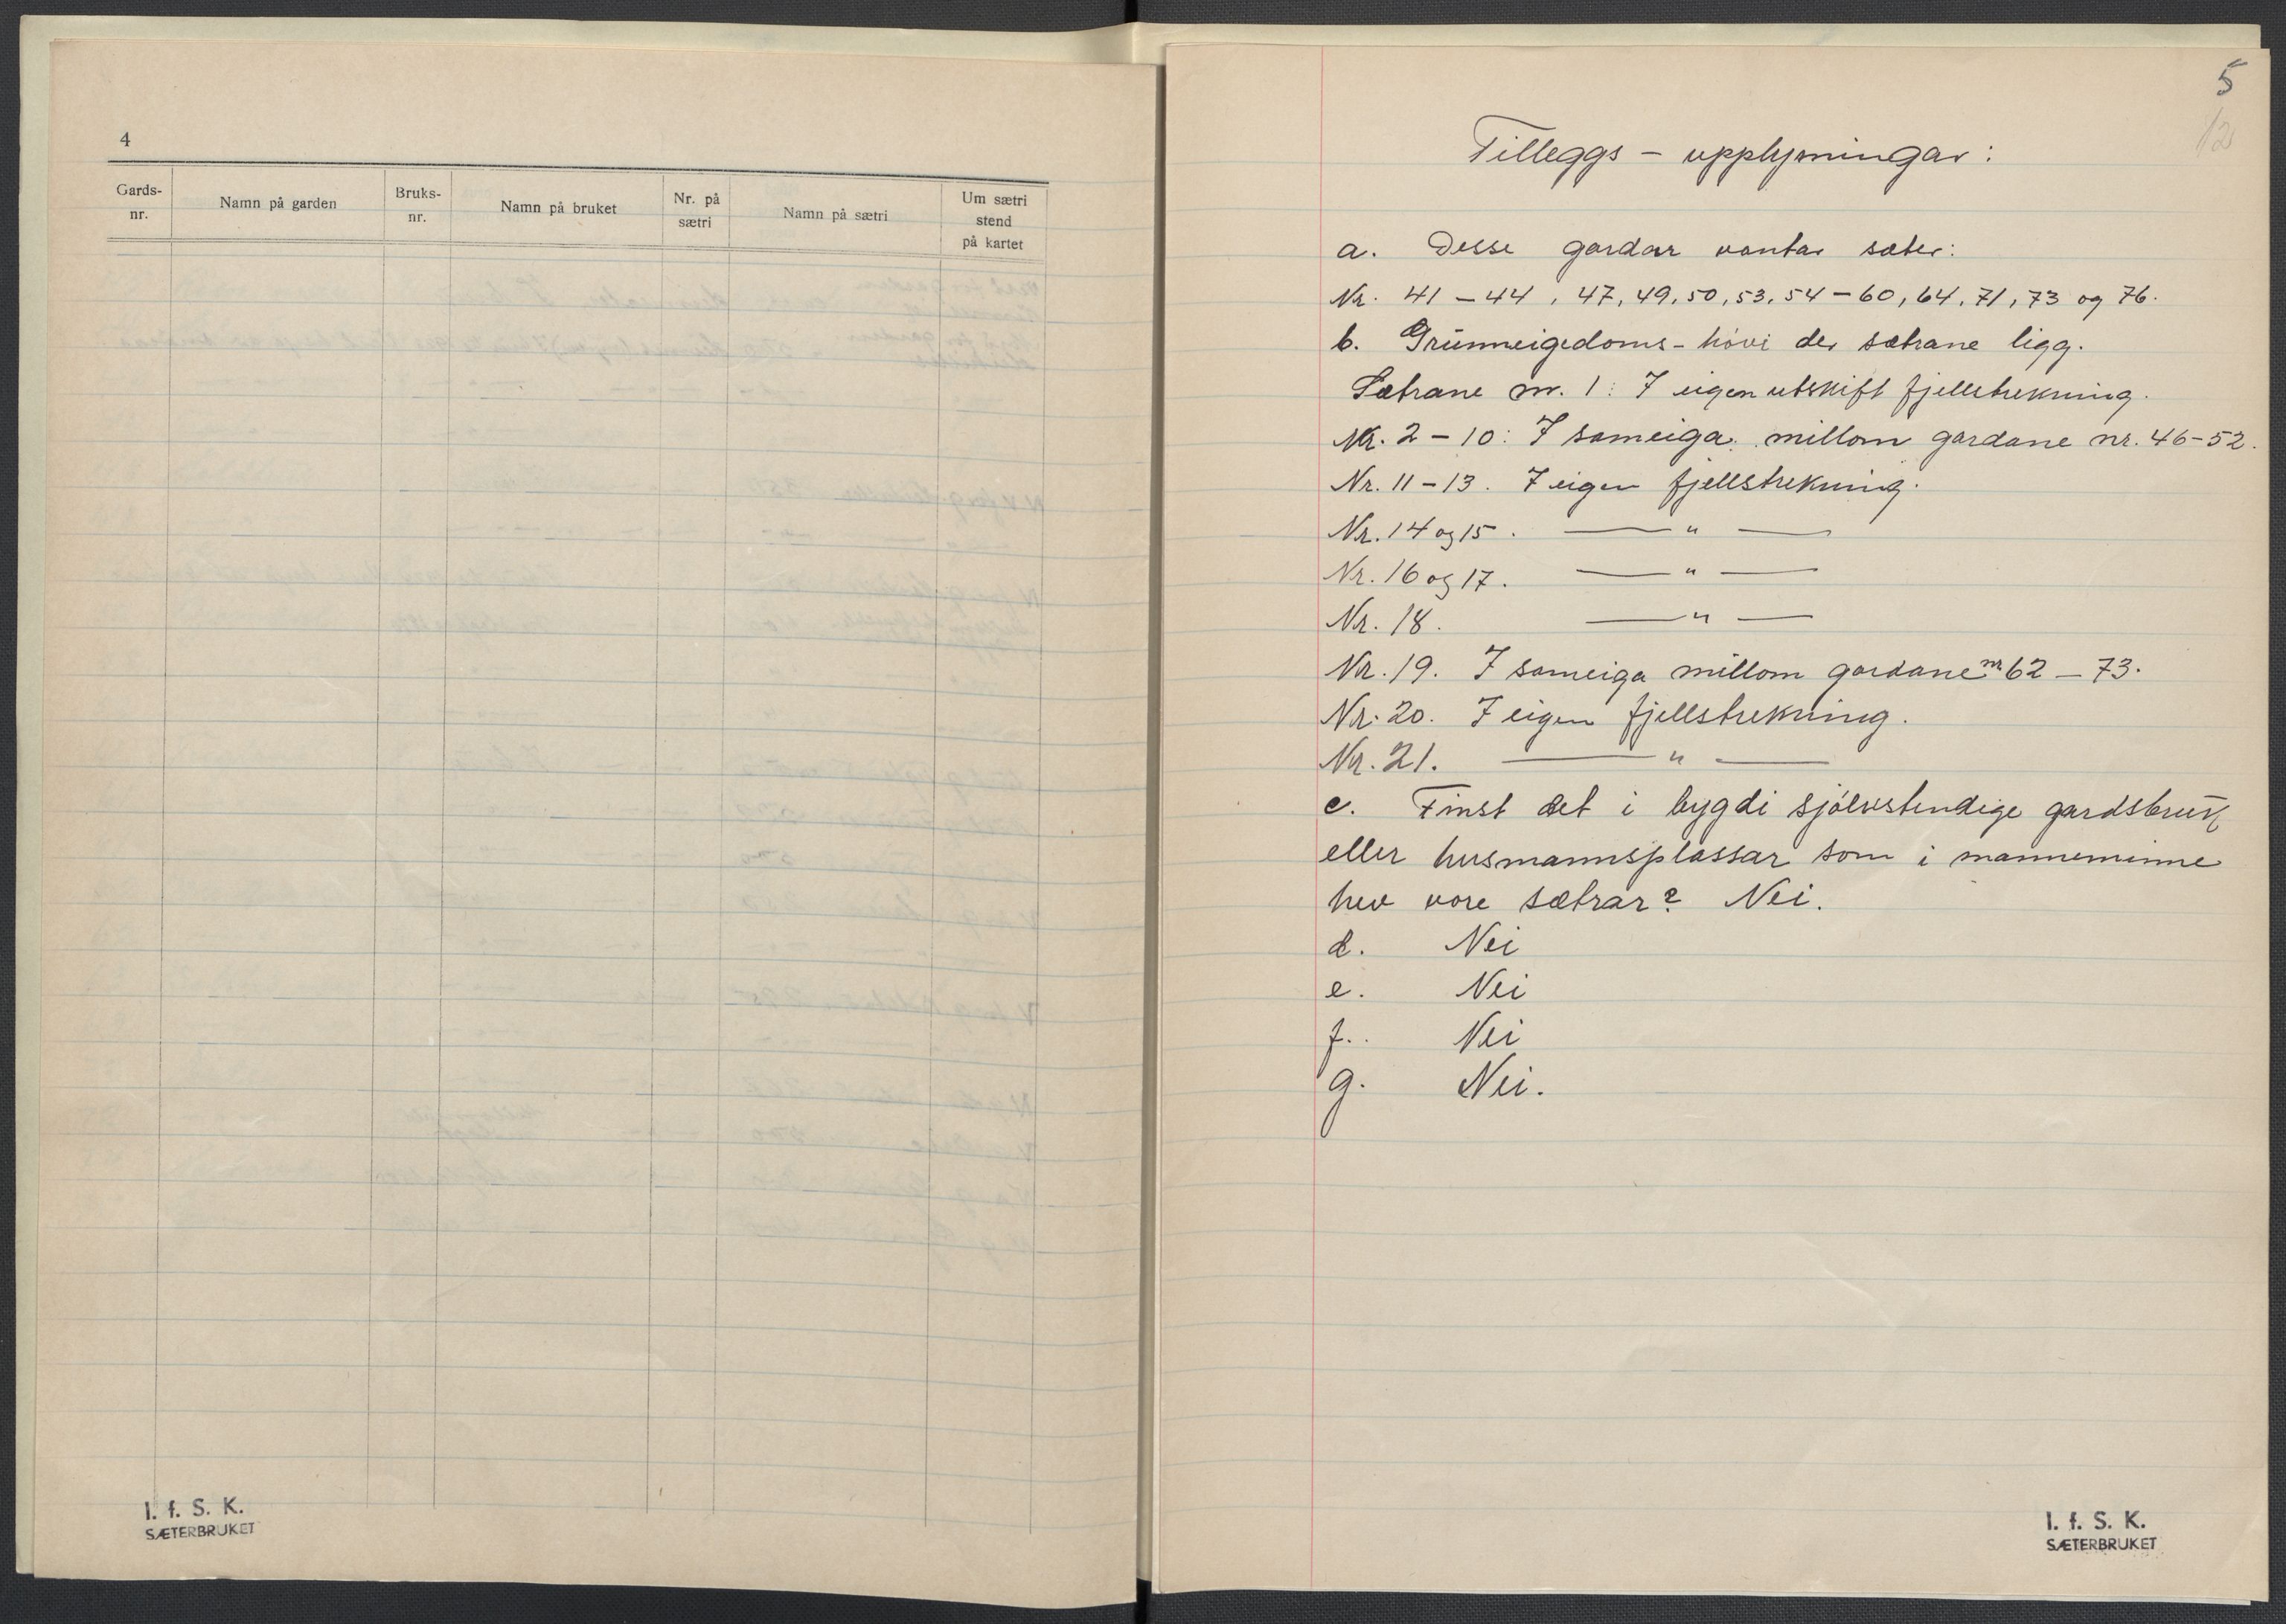 4
Gards-
nr.
Namn på garden
Bruks-
nr.
Namn på bruket
Nr. på
sætri
Namn på sætri
Um sætri
stend
på kartet
I. f. S. K.
SÆTERBRUKET
5
12
Tilleggs - upplysningar:
a. Desse gardar vantar sæter:
Nr. 41 - 44, 47, 49, 50, 53, 54 - 60, 64, 71, 73 og 76.
b. Grunneigedoms - hövi der sætrane ligg.
Sætrane nr. 1: I eigen utskift fjellstrekning.
Nr. 2 - 10: I sameiga millom gardane nr. 46 - 52.
Nr. 11 - 13. I eigen fjellstrekning.
Nr. 14 og 15. — " —
Nr. 16 og 17. — " —
Nr. 18. — " —
Nr. 19. I sameiga millom gardane nr 62 - 73.
Nr. 20. I eigen fjellstrekning.
Nr. 21. — " —
c. Finst det i bygdi sjölvstendige gardsbruk
eller husmannsplassar som i manneminne
hev vore sætrar? Nei.
d. Nei
e. Nei
f. Nei
g. Nei.
I. f. S. K.
SÆTERBRUKET